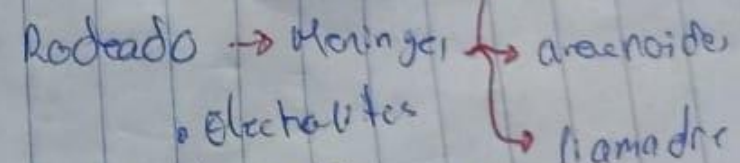 Rodeado → Meninges → aracnoides
• Electrolitos → Piamadre